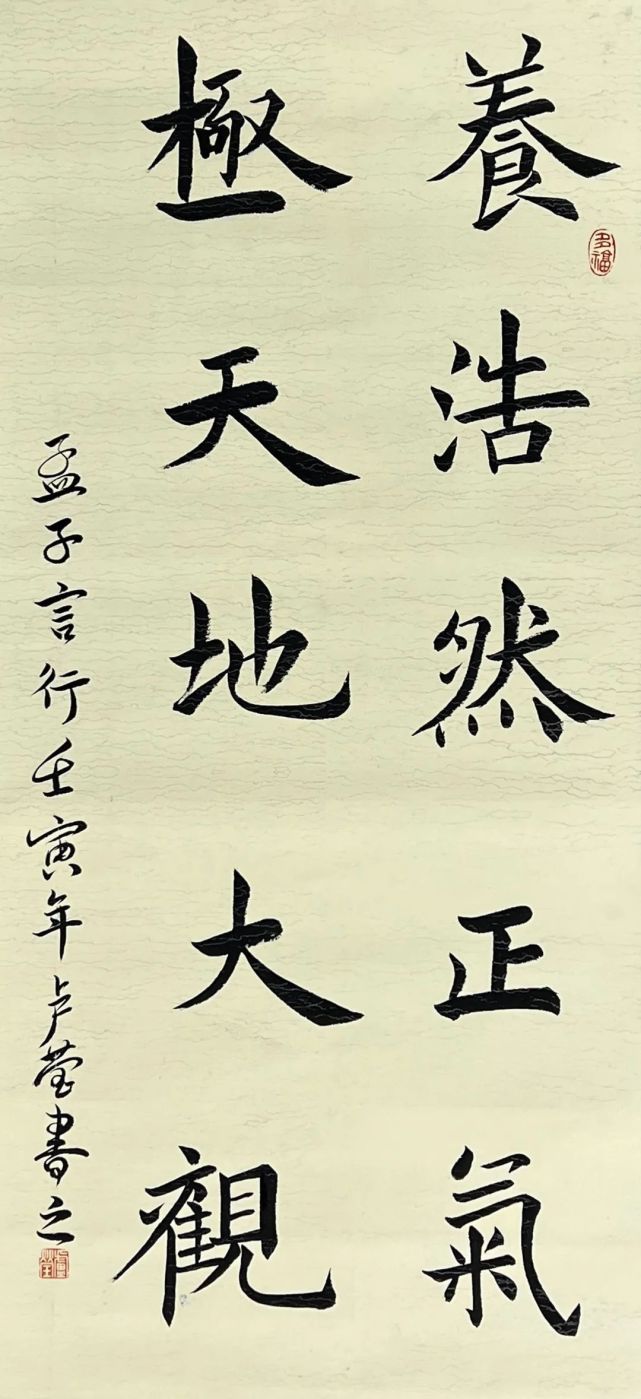 養浩然正氣
極天地大觀
孟子言行壬寅年卢莹書之
多福
盧瑩